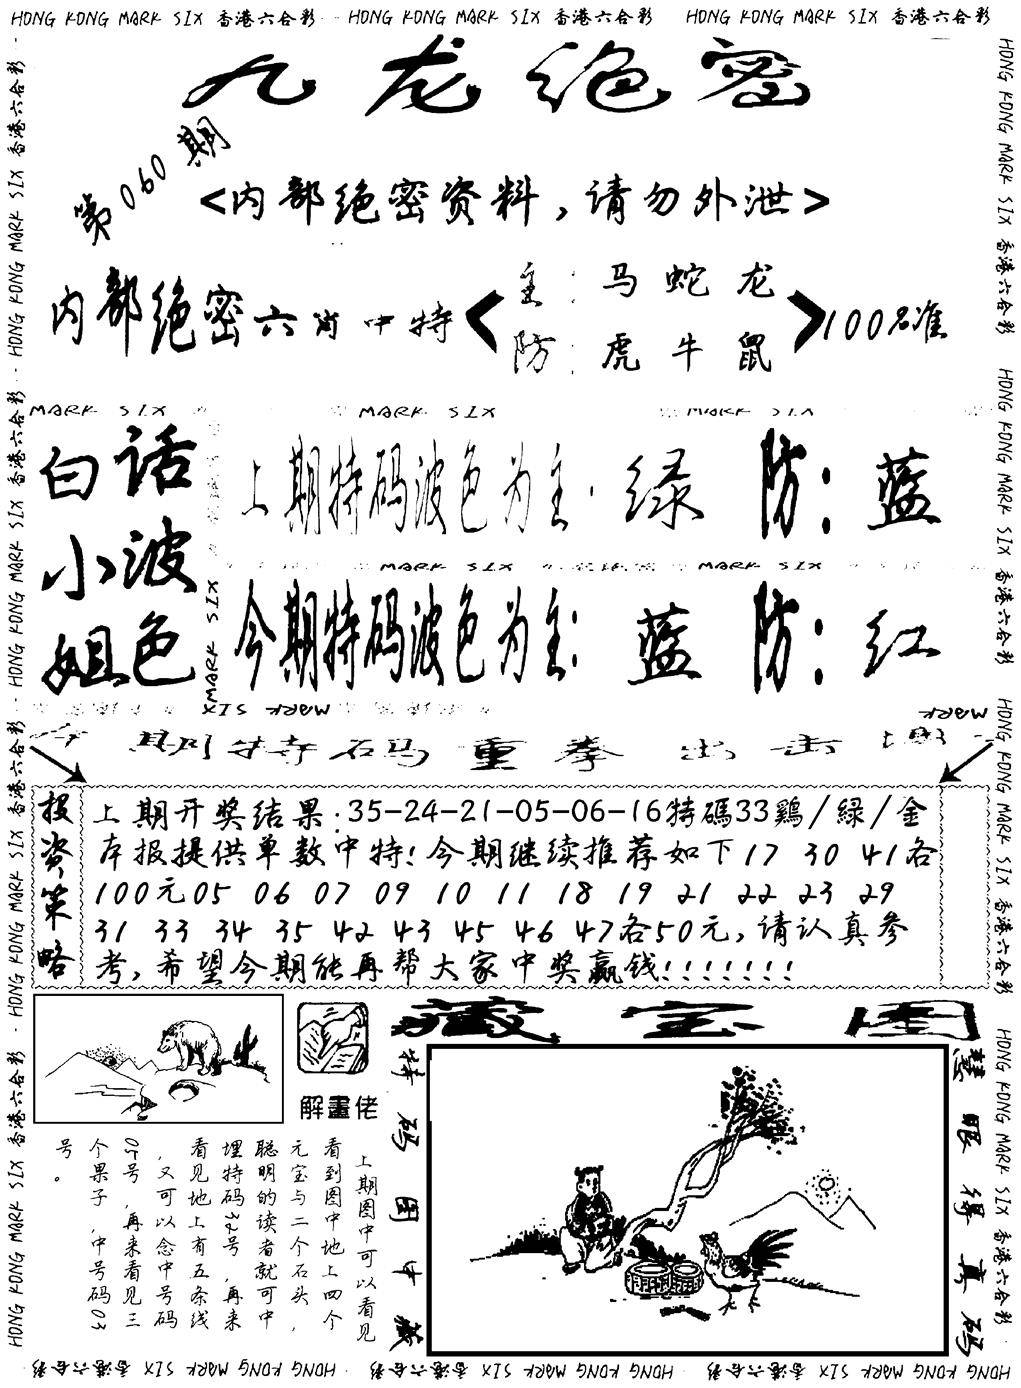 HONG KONG MARK SIX 香港六合彩 HONG KONG MARK SIX 香港六合彩 HONG KONG MARK SIX 香港六合彩
九龙绝密
第060期
<内部绝密资料,请勿外泄>
内部绝密六肖中特
主:马蛇龙
防:虎牛鼠
100%准
MARK SIX MARK SIX MARK SIX
白话
小波
姐色
上期特码波色为主:绿 防:蓝
MARK SIX MARK SIX
今期特码波色为主:蓝 防:红
MARK SIX
MARK SIX MARK
今期特码重拳出击
投资策略
上期开奖结果:35-24-21-05-06-16特碼33鷄/緑/金
本报提供单数中特!今期继续推荐如下17 30 41各
100元05 06 07 09 10 11 18 19 21 22 23 29
31 33 34 35 42 43 45 46 47各50元,请认真参
考,希望今期能再帮大家中奖赢钱!!!!!!!
解畫佬
上期图中可以看见
看到图中地上四个
元宝与二个石头,
聪明的读者就可中
埋特码32号,再来
看见地上有五条线
,又可以念中号码
05号,再来看见三
个果子,中号码03
号。
藏宝图
特码图中藏
慧眼得真码
HONG KONG MARK SIX 香港六合彩 HONG KONG MARK SIX 香港六合彩 HONG KONG MARK SIX 香港六合彩 HONG KONG MARK SIX 香港六合彩
HONG KONG MARK SIX 香港六合彩 HONG KONG MARK SIX 香港六合彩 HONG KONG MARK SIX 香港六合彩 HONG KONG MARK SIX 香港六合彩
HONG KONG MARK SIX 香港六合彩 HONG KONG MARK SIX 香港六合彩 HONG KONG MARK SIX 香港六合彩